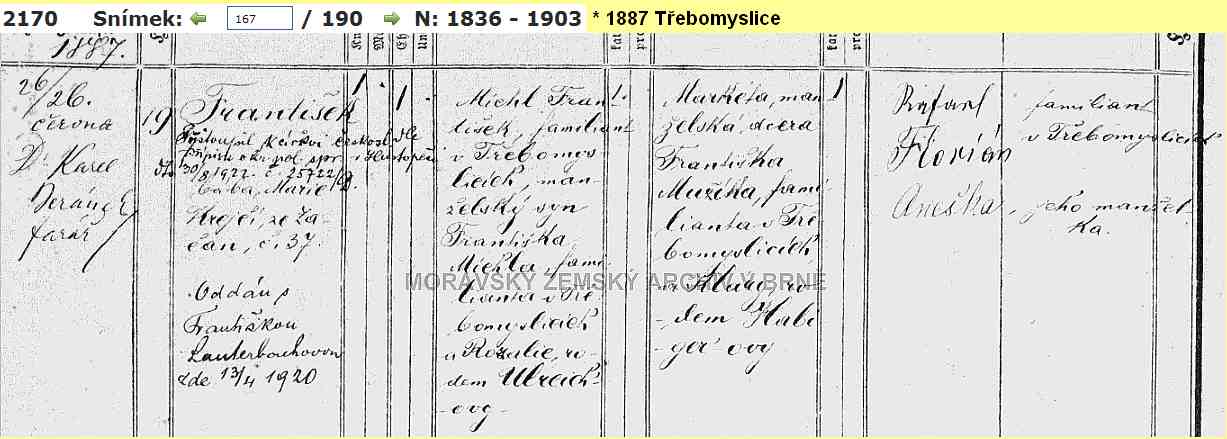 2170 Snímek: 167 / 190 N: 1836 - 1903 * 1887 Třebomyslice
1887.
26/26.
června
Dr Karel
farář
19
František
Přistoupil k církvi českosl. dle
přípisu okr. pol. spr. v Hustopeči
30/8 1922. č. 25722/
bába, Marie
Krejčí, ze Ža-
čan, č. 37.
Oddán s
Františkou
Lauterbachovou
zde 13/4 1920
1
1
Michl Fran-
tišek, familiant
v Třebomys-
licích, man-
želský syn
Františka
Michla, fami-
lianta v Tře-
bomyslicích
a Rozalie, ro-
dem Ulreich-
ovy
1
Marketa, man-
želská dcera
Františka
Mužíka, fami-
lianta v Tře-
bomyslicích
ro-
dem Habi-
ger-ovy
1
Florián
Anežka
familiant
v Třebomyslicích
jeho manžel-
ka.
MORAVSKÝ ZEMSKÝ ARCHIV V BRNĚ